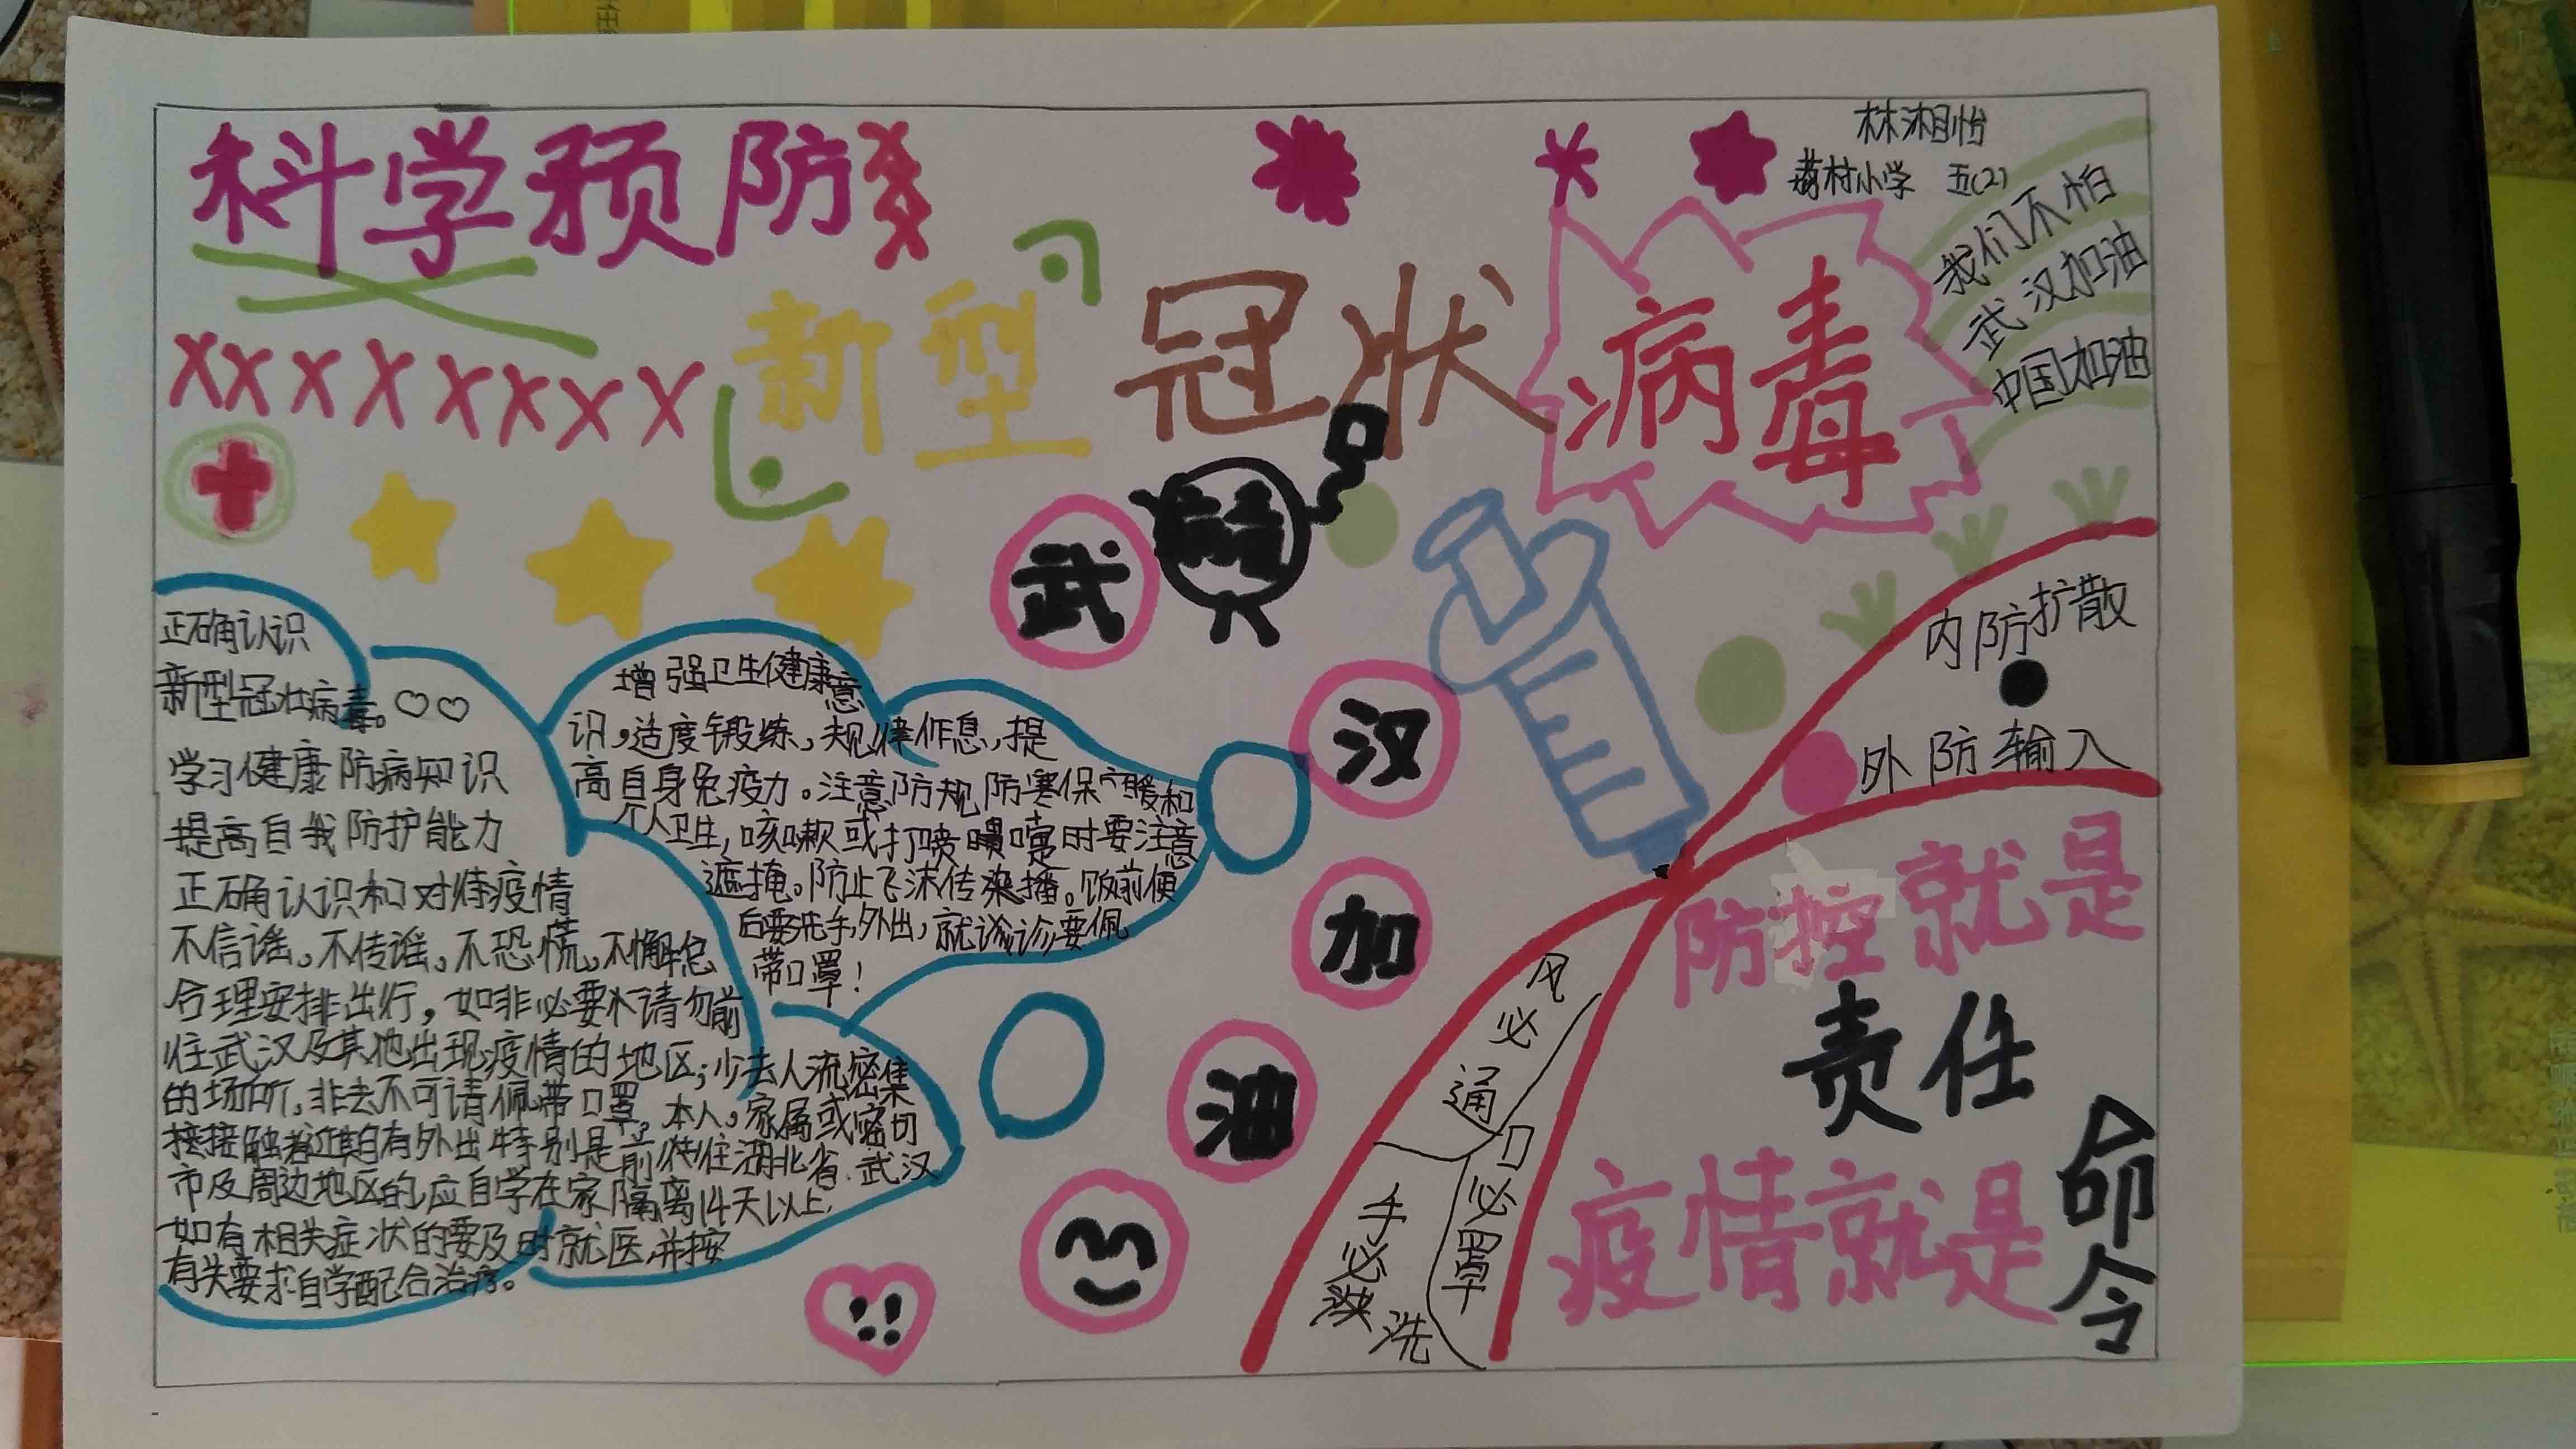 科学预防
新型冠状病毒
林湘怡
小学 五(2)
我们不怕
武汉加油
中国加油
武汉加油
正确认识
新型冠状病毒。
学习健康防病知识
提高自我防护能力
正确认识和对待疫情
不信谣。不传谣。不恐慌。不懈怠
合理安排出行，如非必要请勿前
往武汉及其他出现疫情的地区；少去人流密集
的场所，非去不可请佩带口罩，本人。家属或密切
接接触者近期有外出特别是前往湖北省.武汉
市及周边地区的，应自学在家隔离14天以上，
如有相关症状的要及时就医，并按
有关要求自学配合治疗。
增强卫生健康意
识，适度锻练，规律作息，提
高自身免疫力。注意防规防寒保暖和
个人卫生，咳嗽或打喷嚏时要注意
遮掩。防止飞沫传染播。饭前便
后要洗手，外出，就诊要佩
带口罩！
内防扩散
外防输入
风必通
口必罩
手必洗
防控就是
责任
疫情就是
命令